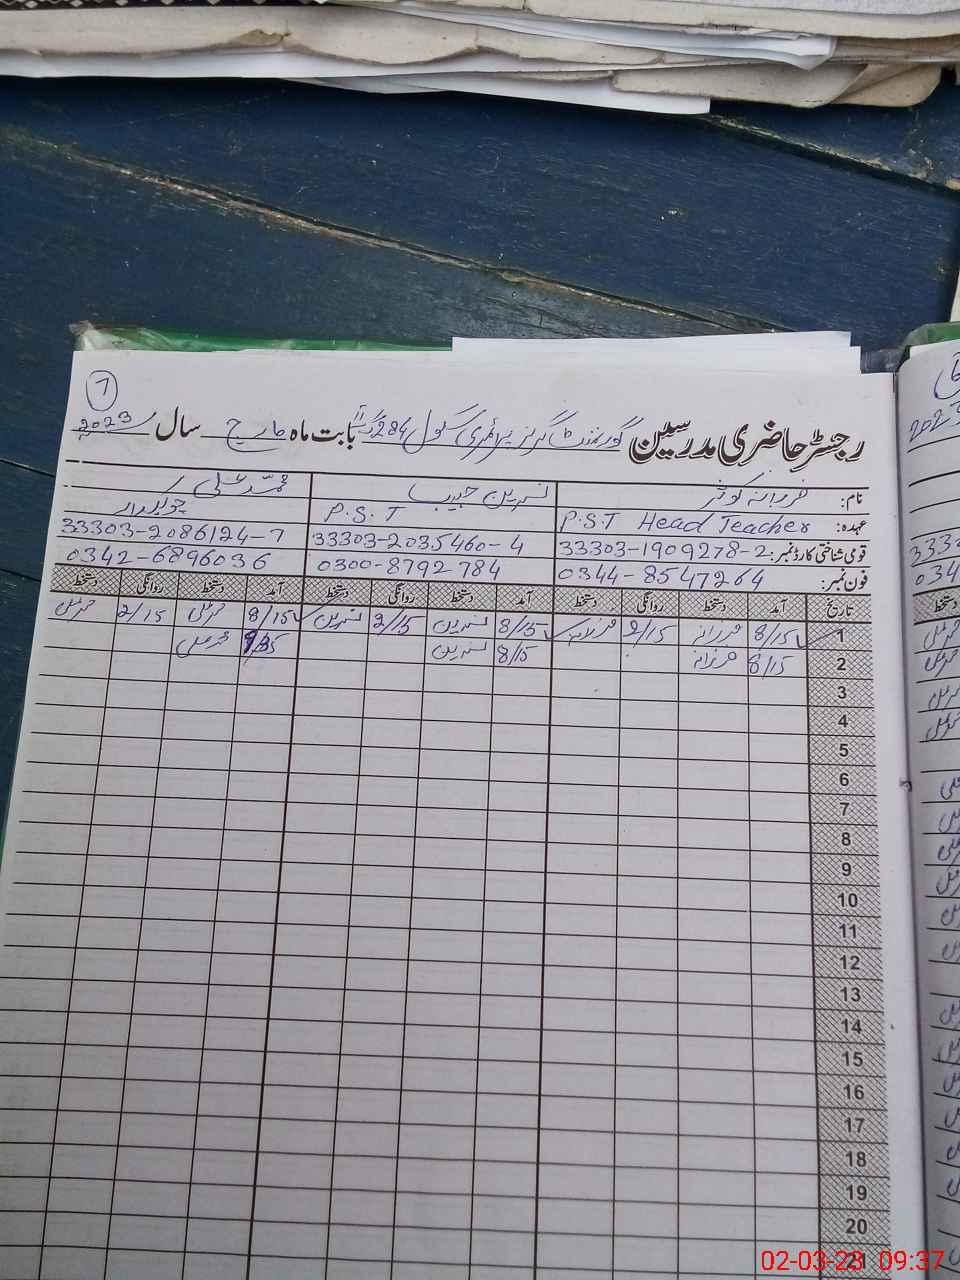 1
رجسٹر حاضری مدرسین گورنمنٹ گرلز پرائمری سکول 284 گ ب بابت ماہ مارچ سال 2023
نام: فرزانہ کوثر نسرین حبیب محمد علی
عہدہ: P.S.T Head Teacher P.S.T چوکیدار
قومی شناختی کارڈ نمبر: 33303-1909278-2 33303-2035460-4 33303-2086124-7
فون نمبر: 0344-8547264 0300-8792784 0342-6896036
تاریخ آمد دستخط روانگی دستخط آمد دستخط روانگی دستخط آمد دستخط روانگی دستخط
1 8/15 فرزانہ 2/15 فرزانہ 8/15 نسرین 2/15 نسرین 8/15 محمد علی 2/15 محمد علی
2 8/15 فرزانہ 8/15 نسرین محمد علی
3
4
5
6
7
8
9
10
11
12
13
14
15
16
17
18
19
20
21
02-03-23 09:37